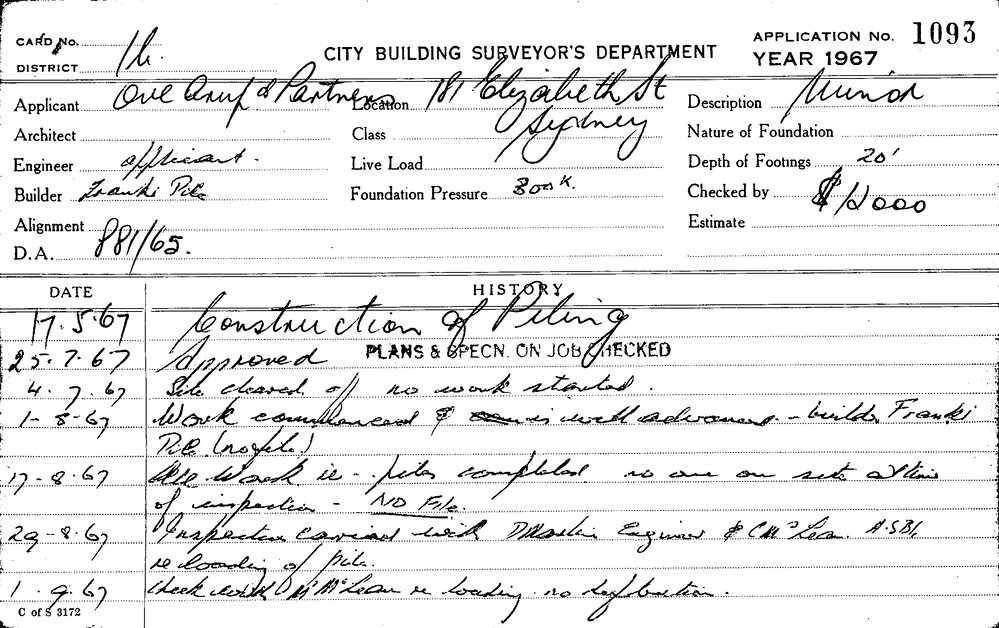 CARD No.
DISTRICT 1h.
CITY BUILDING SURVEYOR'S DEPARTMENT
APPLICATION No. 1093
YEAR 1967
Applicant Ove Arup & Partners
Location 181 Elizabeth St
Sydney
Description Minor
Architect
Class
Nature of Foundation
Engineer applicant.
Live Load
Depth of Footings 20'
Builder Franki Pile
Foundation Pressure
Checked by
$12000
Alignment
Estimate
D.A. 881/65.
DATE HISTORY
17.5.67 Construction of Piling
25.7.67 Approved PLANS & SPECN. ON JOB CHECKED
4.7.67 Site cleared off no work started.
1-8-67 Work commenced & is well advanced - builder Franki
Pile (no file)
17-8-67 All work ie - piles completed no one on site at time
of inspection - NO File.
29-8-67 Inspection carried with Engineer & C McLean A.S.B.
re loading of pile.
1.9.67 check with Mr McLean re loading. no deflection.
C of S 3172